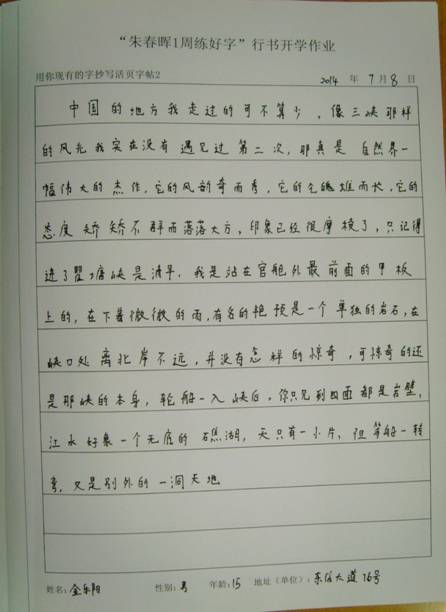 “朱春晖1周练好字”行书开学作业
用你现有的字抄写活页字帖2 2014 年 7 月 8 日
中国的地方我走过的可不算少，像三峡那样
的风光我实在没有遇见过第二次，那真是自然界一
幅伟大的杰作，它的风韵奇而秀，它的气魄雄而长，它的
态度矫矫不群而落落大方，印象已经很摩棱了，只记得
进了瞿塘峡是清早，我是站在官舱外最前面的甲板
上的，在下着微微的雨，有名的艳预是一个单独的岩石，在
峡口处离北岸不远，并没有怎样的惊奇，可惊奇的还
是那峡的本身，轮船一入峡后，你只见到四面都是岩壁，
江水好象一个无底的礁湖，天只有一小片，但等船一转
弯，又是别外的一洞天地
姓名：金乐阳 性别：男 年龄：15 地址（单位）：东信大道76号